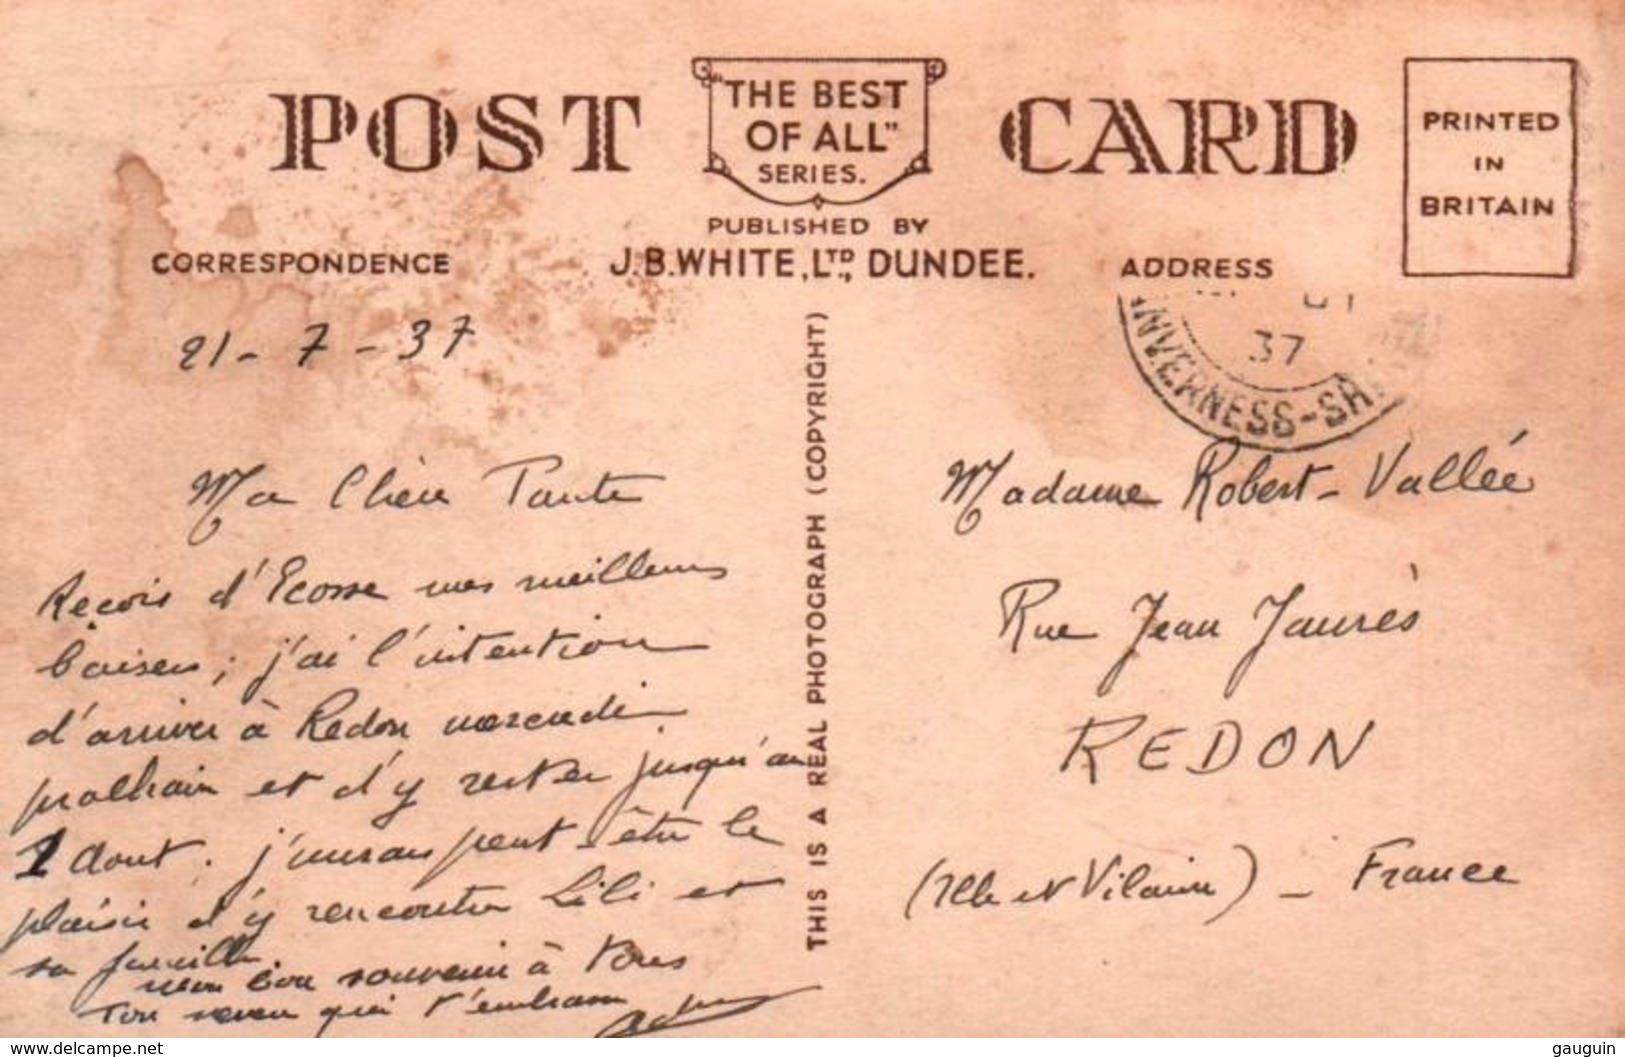 POST CARD
"THE BEST
OF ALL"
SERIES.
PUBLISHED BY
J.B. WHITE, LTD., DUNDEE.
PRINTED
IN
BRITAIN
CORRESPONDENCE
ADDRESS
37
INVERNESS-SH
THIS IS A REAL PHOTOGRAPH (COPYRIGHT)
21-7-37
Ma Chère Tante
Reçois d'Ecosse mes meilleurs
baisers; j'ai l'intention
d'arriver à Redon mercredi
prochain et d'y rester jusqu'au
1 Aout. j'aurais peut-être le
plaisir d'y rencontrer Lili et
sa famille
mon bon souvenir à tous
Ton neveu qui t'embrasse
Madame Robert-Vallée
Rue Jean Jaurès
REDON
(Ille et Vilaine) - France
www.delcampe.net
gauguin